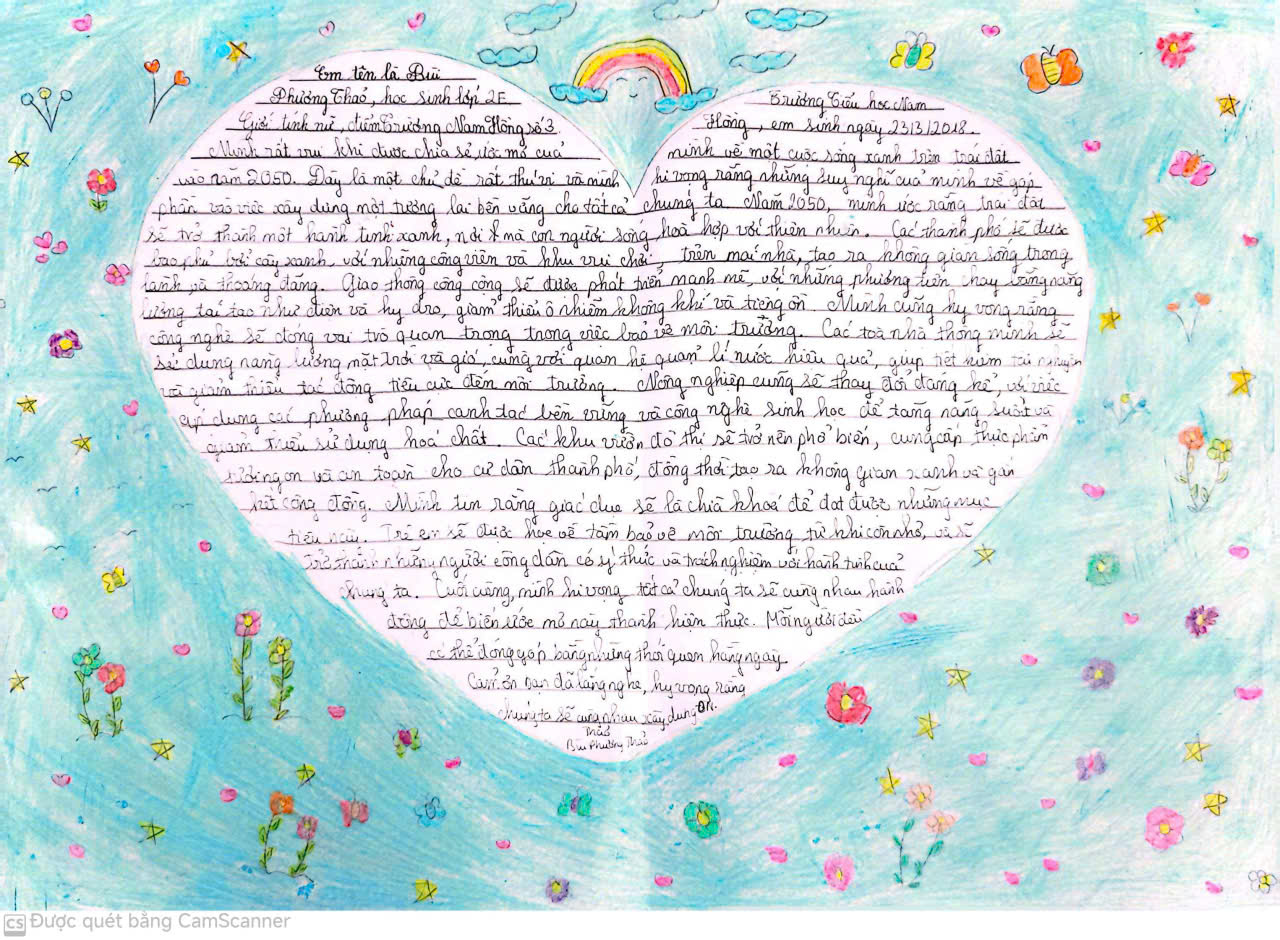 Em tên là Bùi
Phương Thảo, học sinh lớp 2E Trường Tiểu học Nam
Giới tính nữ, điểm Trường Nam Hồng số 3 Hồng, em sinh ngày 23/3/2018.
Mình rất vui khi được chia sẻ ước mơ của mình về một cuộc sống xanh trên trái đất
vào năm 2050. Đây là một chủ đề rất thú vị và mình hi vọng rằng những suy nghĩ của mình về góp
phần vào việc xây dựng một tương lai bền vững cho tất cả chúng ta Năm 2050, mình ước rằng trái đất
sẽ trở thành một hành tinh xanh, nơi mà con người sống hoà hợp với thiên nhiên. Các thành phố sẽ được
bao phủ bởi cây xanh, với những công viên và khu vui chơi, trên mái nhà, tạo ra không gian sống trong
lành và thoáng đãng. Giao thông công cộng sẽ được phát triển mạnh mẽ, với những phương tiện chạy bằng năng
lượng tái tạo như điện và hy dro, giảm thiểu ô nhiễm không khí và tiếng ồn. Mình cũng hy vọng rằng
công nghệ sẽ đóng vai trò quan trọng trong việc bảo vệ môi trường. Các toà nhà thông minh sẽ
sử dụng năng lượng mặt trời và gió, cùng với quan hệ quản lí nước hiệu quả, giúp tiết kiệm tài nguyên
và giảm thiểu tác động tiêu cực đến môi trường. Nông nghiệp cũng sẽ thay đổi đáng kể, với việc
áp dụng các phương pháp canh tác bền vững và công nghệ sinh học để tăng năng suất và
giảm thiểu sử dụng hoá chất. Các khu vườn đô thị sẽ trở nên phổ biến, cung cấp thực phẩm
tươi ngon và an toàn cho cư dân thành phố, đồng thời tạo ra không gian xanh và gắn
kết cộng đồng. Mình tin rằng giác dục sẽ là chìa khoá để đạt được những mục
tiêu này. Trẻ em sẽ được học về tầm bảo vệ môi trường từ khi còn nhỏ, và sẽ
trở thành những người công dân có ý thức và trách nghiệm với hành tinh của
chúng ta. Cuối cùng, mình hi vọng tất cả chúng ta sẽ cùng nhau hành
động để biến ước mơ này thành hiện thực. Mỗi người đều
có thể đóng góp bằng những thói quen hằng ngày
Cảm ơn bạn đã lắng nghe, hy vọng rằng
chúng ta sẽ cùng nhau xây dựng
Thảo
Bùi Phương Thảo
CS Được quét bằng CamScanner